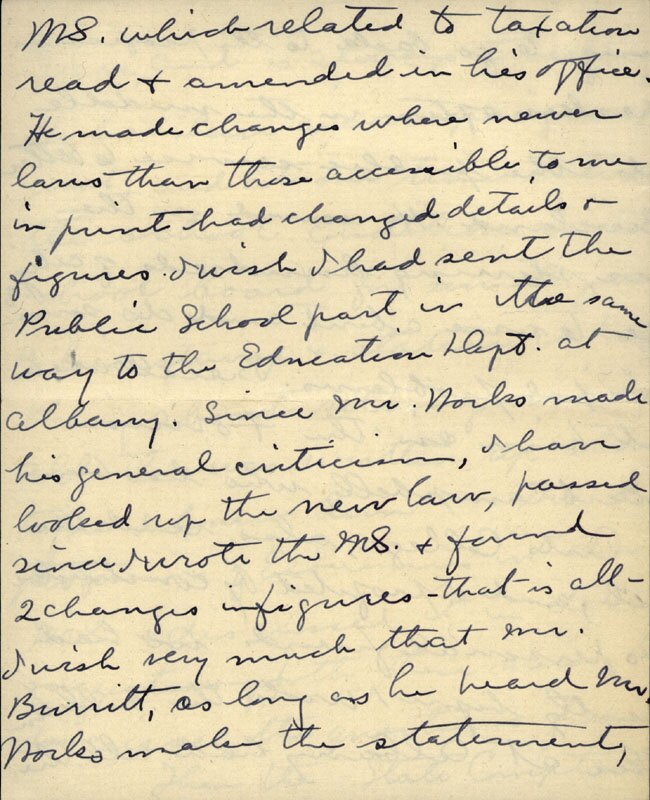 MS. which related to taxation
read + amended in his office.
He made changes where newer
laws than those accessible to me
in print had changed details +
figures. I wish I had sent the
Public School part in the same
way to the Education Dept. at
Albany. Since Mr. Works made
his general criticism, I have
looked up the new law, passed
since I wrote the MS. + found
2 changes in figures - that is all -
I wish very much that Mr.
Burritt, as long as he heard Mr.
Works make the statement,